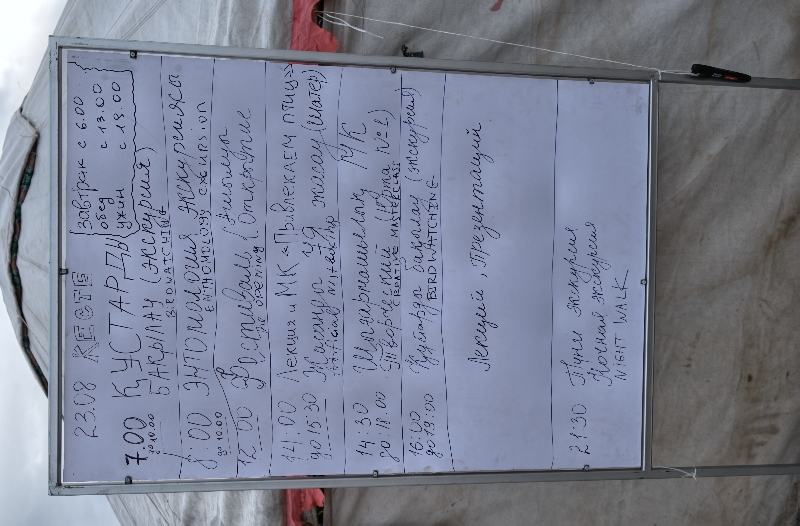 23.08 КЕСТЕ
завтрак с 6.00
обед с 13.00
ужин с 19.00
7.00 ҚҰСТАРДЫ
до 10.00 БАҚЫЛАУ (экскурсия)
BIRDWATCHING
8:00 ЭНТОМОЛОГИЯ экскурсияса
до 10.00 ENTHOMOLOGY EXCURSION
12:00 Фестиваль (Открытие
OPENING
14:00 Лекция и МК «Привлекаем птиц»
до 15:30 Жасанды ұя жасау (шатер)
14:30 Шығармашылық МК
до 18:00 Творческий (Юрта №1)
CREATIVE MASTERCLASS
16:00 Құстарды бақылау (экскурсия)
до 19:00 BIRDWATCHING
Лекций, презентаций
21:30 Түнгі экскурсия
Ночная экскурсия
NIGHT WALK